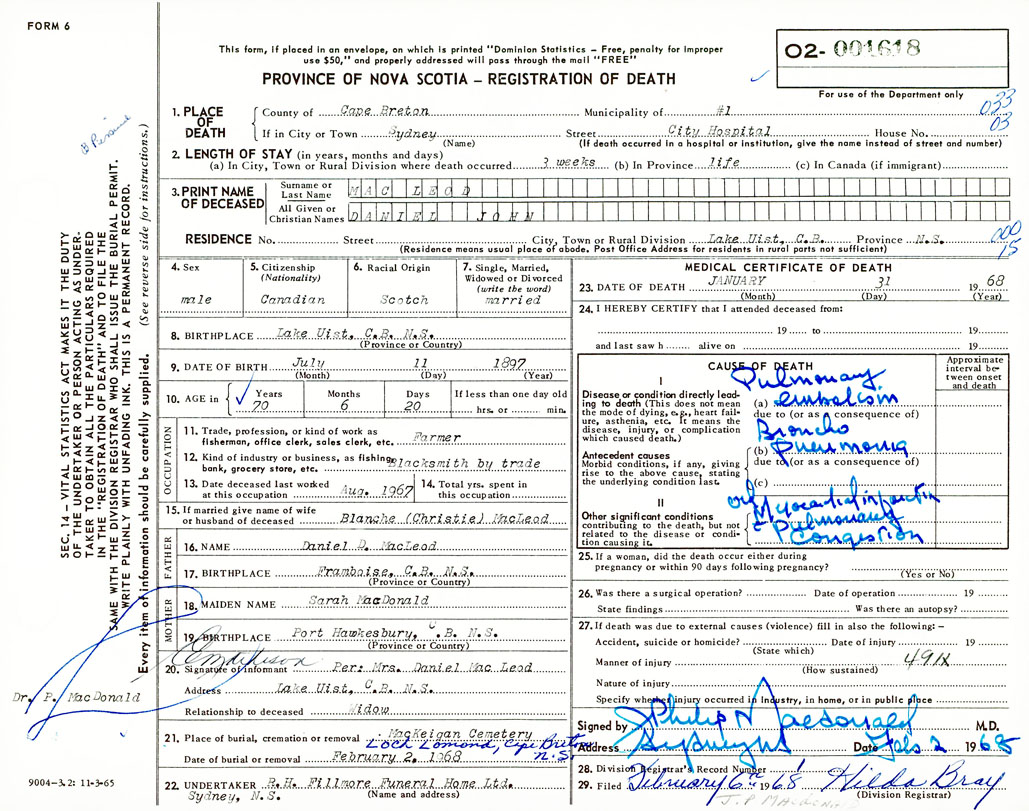 FORM 6
This form, if placed in an envelope, on which is printed "Dominion Statistics – Free, penalty for improper
use $50," and properly addressed will pass through the mail "FREE"
PROVINCE OF NOVA SCOTIA – REGISTRATION OF DEATH
02- 001618
For use of the Department only
033
03
1. PLACE OF DEATH
County of Cape Breton Municipality of #1
If in City or Town Sydney Street City Hospital House No.
(Name) (If death occurred in a hospital or institution, give the name instead of street and number)
2. LENGTH OF STAY (in years, months and days)
(a) In City, Town or Rural Division where death occurred 3 weeks (b) In Province life (c) In Canada (if immigrant)
3. PRINT NAME OF DECEASED
Surname or Last Name MAC LEOD
All Given or Christian Names DANIEL JOHN
RESIDENCE No. Street City, Town or Rural Division Lake Uist, C.B. Province N.S.
(Residence means usual place of abode. Post Office Address for residents in rural parts not sufficient)
000
15
4. Sex
male
5. Citizenship
(Nationality)
Canadian
6. Racial Origin
Scotch
7. Single, Married,
Widowed or Divorced
(write the word)
married
8. BIRTHPLACE Lake Uist, C.B. N.S.
(Province or Country)
9. DATE OF BIRTH July 11 1897
(Month) (Day) (Year)
10. AGE in
Years Months Days If less than one day old
70 6 20 hrs. or min.
OCCUPATION
11. Trade, profession, or kind of work as
fisherman, office clerk, sales clerk, etc. Farmer
12. Kind of industry or business, as fishing,
bank, grocery store, etc. Blacksmith by trade
13. Date deceased last worked
at this occupation Aug. 1967
14. Total yrs. spent in
this occupation
15. If married give name of wife
or husband of deceased Blanche (Christie) MacLeod
FATHER
16. NAME Daniel D. MacLeod
17. BIRTHPLACE Framboise, C.B. N.S.
(Province or Country)
MOTHER
18. MAIDEN NAME Sarah MacDonald
19. BIRTHPLACE Port Hawkesbury, C.B. N.S.
(Province or Country)
20. Signature of informant Per: Mrs. Daniel Mac Leod
Address Lake Uist, C.B. N.S.
Relationship to deceased Widow
21. Place of burial, cremation or removal MacKeigan Cemetery
Loch Lomond, Cape Breton
N.S.
Date of burial or removal February 2, 1968
22. UNDERTAKER R.H. Fillmore Funeral Home Ltd.
Sydney, N.S. (Name and address)
MEDICAL CERTIFICATE OF DEATH
23. DATE OF DEATH JANUARY 31 19 68
(Month) (Day) (Year)
24. I HEREBY CERTIFY that I attended deceased from:
19 to 19
and last saw h alive on 19
CAUSE OF DEATH
Approximate
interval be-
tween onset
and death
I
Disease or condition directly lead-
ing to death (This does not mean
the mode of dying, e.g., heart fail-
ure, asthenia, etc. It means the
disease, injury, or complication
which caused death.)
Pulmonary
(a) embolism
due to (or as a consequence of)
Broncho
(b) Pneumonia
due to (or as a consequence of)
Antecedent causes
Morbid conditions, if any, giving
rise to the above cause, stating
the underlying condition last.
(c)
II
Other significant conditions
contributing to the death, but not
related to the disease or condi-
tion causing it.
old Myocardial infarction
c̄ Pulmonary
Congestion
25. If a woman, did the death occur either during
pregnancy or within 90 days following pregnancy?
(Yes or No)
26. Was there a surgical operation? Date of operation 19
State findings Was there an autopsy?
27. If death was due to external causes (violence) fill in also the following:–
Accident, suicide or homicide? Date of injury 19
(State which)
Manner of injury 491X
(How sustained)
Nature of injury
Specify whether injury occurred in industry, in home, or in public place
Signed by Philip N Macdonald M.D.
Address Sydney NS Date Feb 2 1968
28. Division Registrar's Record Number
29. Filed February 6th 1968 Hilda Bray
(Division Registrar)
J.P. MacDonald
SEC. 14 – VITAL STATISTICS ACT MAKES IT THE DUTY
OF THE UNDERTAKER OR PERSON ACTING AS UNDER-
TAKER TO OBTAIN ALL THE PARTICULARS REQUIRED
IN THE "REGISTRATION OF DEATH" AND TO FILE THE
SAME WITH THE DIVISION REGISTRAR WHO SHALL ISSUE THE BURIAL PERMIT.
WRITE PLAINLY WITH UNFADING INK. THIS IS A PERMANENT RECORD.
Every item of information should be carefully supplied. (See reverse side for instructions.)
Dr. P. MacDonald
9004-3.2: 11-3-65